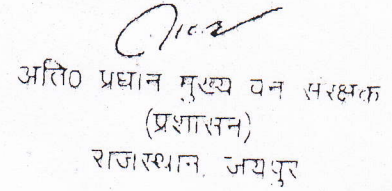 अति० प्रधान मुख्य वन संरक्षक
(प्रशासन)
राजस्थान, जयपुर